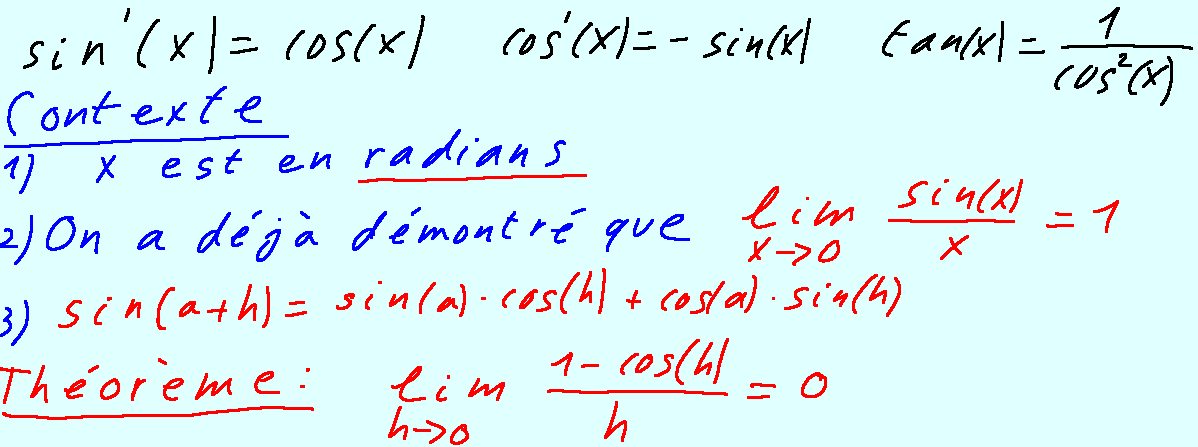 sin'(x) = cos(x) cos'(x) = - sin(x) tan(x) = 1/cos²(x)
Contexte
1) x est en radians
2) On a déjà démontré que lim x->0 sin(x)/x = 1
3) sin(a+h) = sin(a)·cos(h) + cos(a)·sin(h)
Théorème: lim h->0 1-cos(h)/h = 0